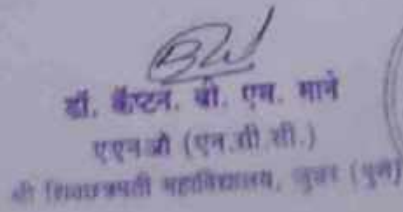 डॉ. कॅप्टन. बी. एम. माने
एएनओ (एन.सी.सी.)
श्री शिवछत्रपती महाविद्यालय, जुन्नर (पुणे)